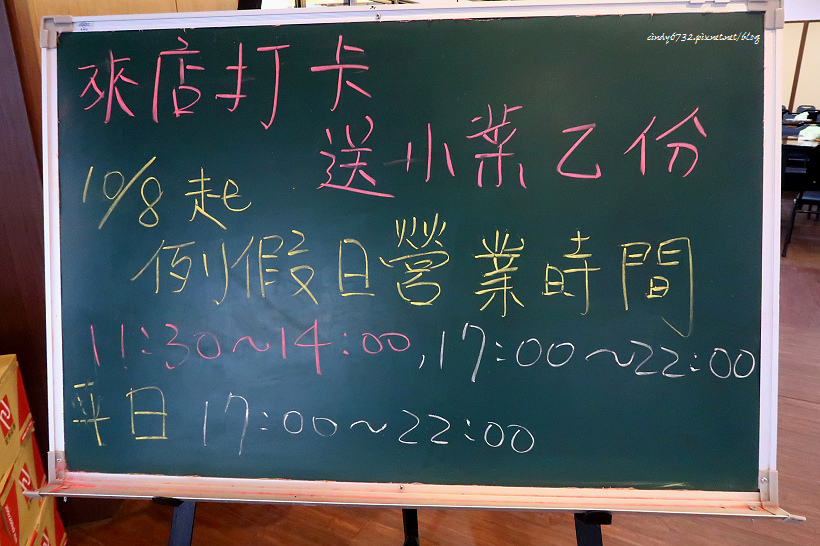 cindy6732.pixnet.net/blog
來店打卡
送小菜乙份
10/8起
例假日營業時間
11:30~14:00,17:00~22:00
平日 17:00~22:00